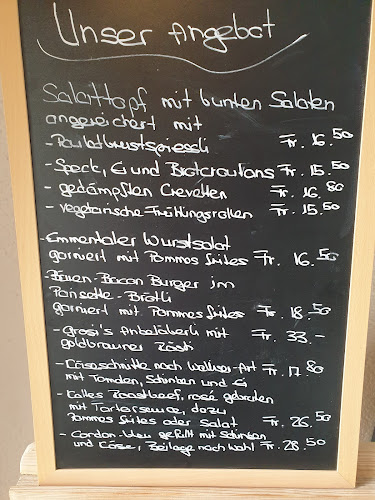 Unser Angebot
Salattopf mit bunten Salaten
angereichert mit
- Pouletbrustspiessli Fr. 16.50
- Speck, Ei und Brotcroutons Fr. 15.50
- gedämpften Crevetten Fr. 16.80
- vegetarische Frühlingsrollen Fr. 15.50
- Emmentaler Wurstsalat
garniert mit Pommes frites Fr. 16.50
- Bären-Bacon Burger im
Parisette-Brötli
garniert mit Pommes frites Fr. 18.50
- Grosi's Anketööterli mit
goldbrauner Rösti Fr. 33.-
- Käseschnitte nach Walliser-Art Fr. 17.80
mit Tomaten, Schinken und Ei
- Kaltes Roastbeef, rosé gebraten
mit Tartarsauce, dazu
Pommes frites oder Salat Fr. 26.50
- Cordon-bleu gefüllt mit Schinken
und Käse, Beilage nach Wahl Fr. 28.50